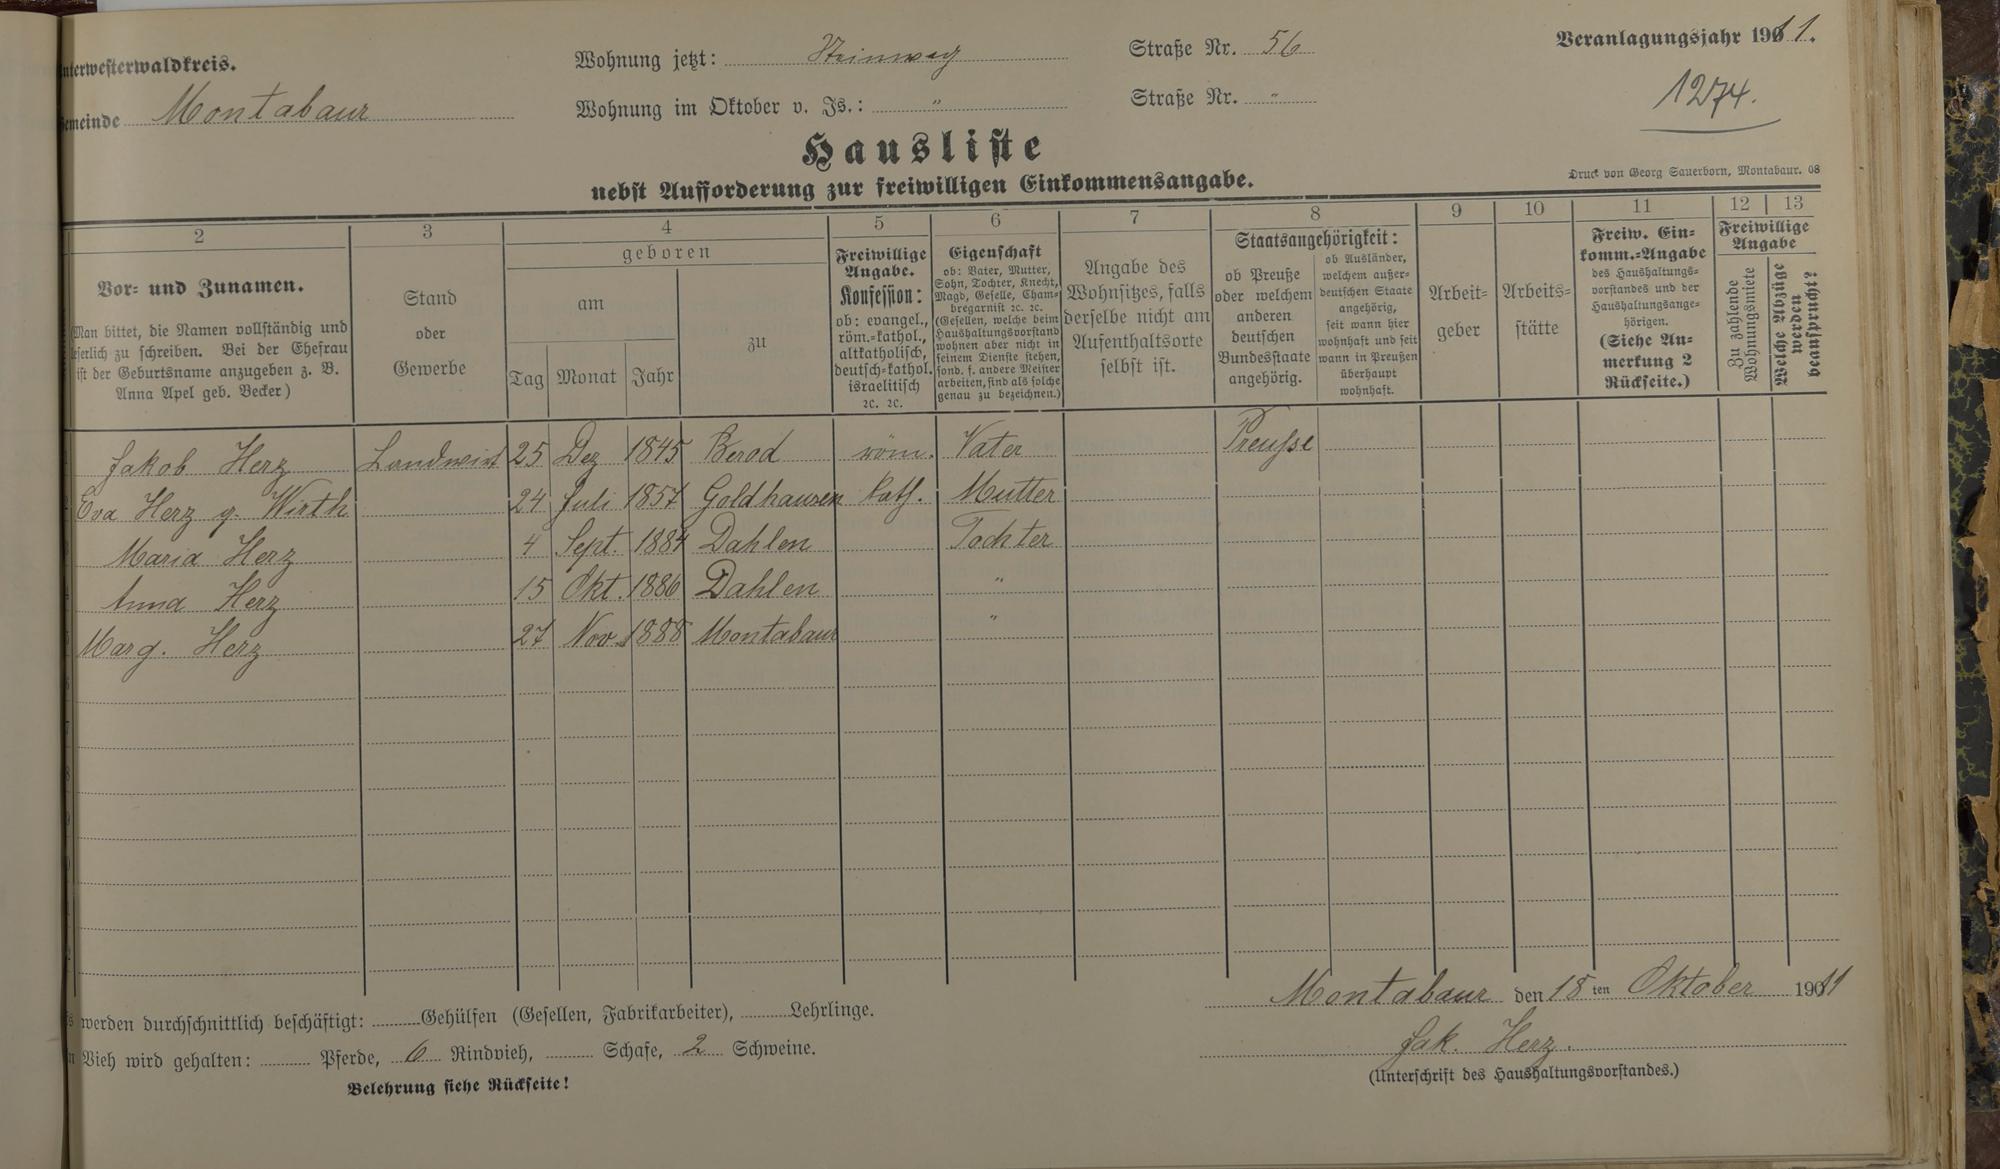 nterwesterwaldkreis.
emeinde Montabaur
Wohnung jetzt: Steinweg Straße Nr. 56
Wohnung im Oktober v. Js.: " Straße Nr. "
Veranlagungsjahr 1911.
1274.
Hausliste
nebst Aufforderung zur freiwilligen Einkommensangabe.
Druck von Georg Sauerborn, Montabaur. 08
2
Vor- und Zunamen.
Man bittet, die Namen vollständig und
leserlich zu schreiben. Bei der Ehefrau
ist der Geburtsname anzugeben z. B.
Anna Apel geb. Becker)
3
Stand
oder
Gewerbe
4
geboren
am
Tag Monat Jahr
zu
5
Freiwillige
Angabe.
Konfession:
ob: evangel.,
röm.-kathol.,
altkatholisch,
deutsch-kathol.
israelitisch
ꝛc. ꝛc.
6
Eigenschaft
ob: Vater, Mutter,
Sohn, Tochter, Knecht,
Magd, Geselle, Cham-
bregarnist ꝛc. ꝛc.
(Gesellen, welche beim
Haushaltungsvorstand
wohnen aber nicht in
seinem Dienste stehen,
sond. f. andere Meister
arbeiten, sind als solche
genau zu bezeichnen.)
7
Angabe des
Wohnsitzes, falls
derselbe nicht am
Aufenthaltsorte
selbst ist.
8
Staatsangehörigkeit:
ob Preuße
oder welchem
anderen
deutschen
Bundesstaate
angehörig.
ob Ausländer,
welchem außer-
deutschen Staate
angehörig,
seit wann hier
wohnhaft und seit
wann in Preußen
überhaupt
wohnhaft.
9
Arbeit-
geber
10
Arbeits-
stätte
11
Freiw. Ein-
komm.-Angabe
des Haushaltungs-
vorstandes und der
Haushaltungsange-
hörigen.
(Siehe An-
merkung 2
Rückseite.)
12 13
Freiwillige
Angabe
Zu zahlende
Wohnungsmiete
Welche Abzüge
werden
beansprucht?
1 Jakob Herz Landwirt 25 Dez 1845 Berod röm. Vater Preusse
2 Eva Herz g. Wirth 24 Juli 1857 Goldhausen kath. Mutter
3 Maria Herz 4 Sept. 1884 Dahlen Tochter
4 Anna Herz 15 Okt. 1886 Dahlen "
5 Marg. Herz 27 Nov. 1888 Montabaur "
6
7
8
9
0
1
2
Montabaur den 18ten Oktober 1911
Jak. Herz.
(Unterschrift des Haushaltungsvorstandes.)
s werden durchschnittlich beschäftigt: Gehülfen (Gesellen, Fabrikarbeiter), Lehrlinge.
n Vieh wird gehalten: Pferde, 6 Rindvieh, Schafe, 2 Schweine.
Belehrung siehe Rückseite!